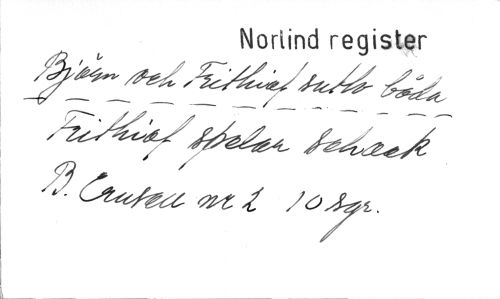 Norlind register
Björn och Frithiof sutto båda
Frithiof spelar schack
B. Crusell nr 2 10 sgr.